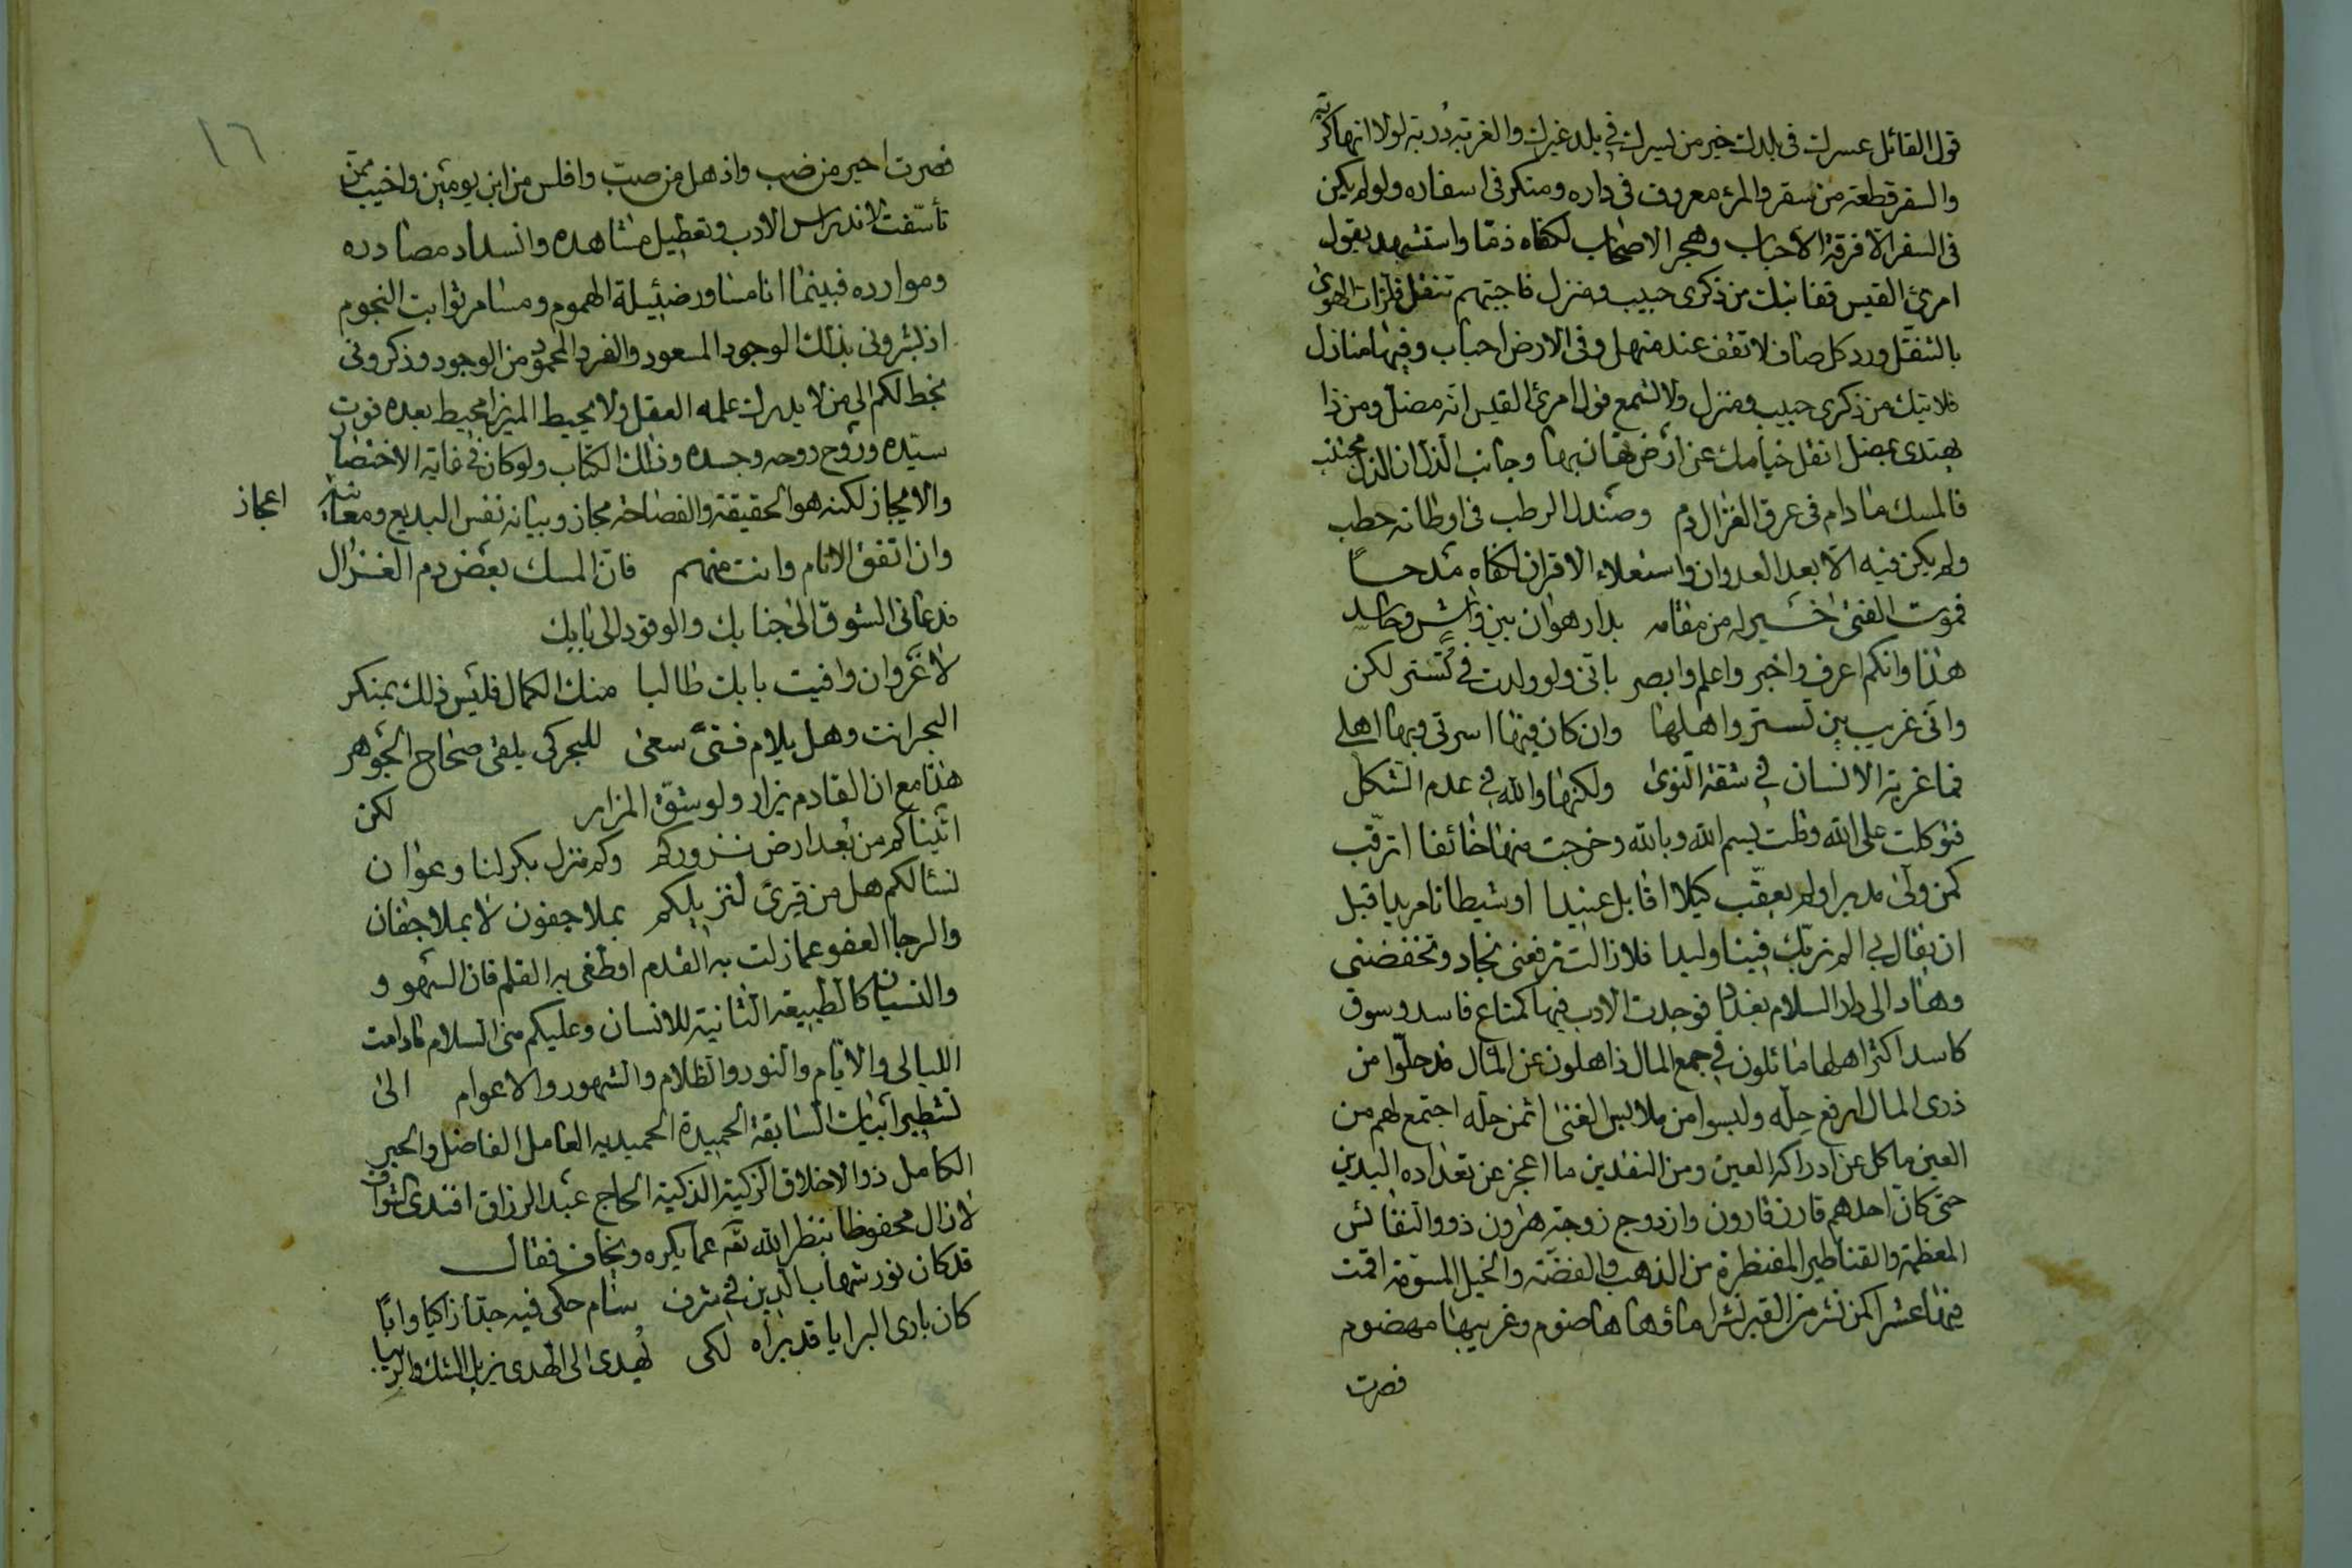 قول القائل عسرك فى بلدك خير من يسرك فى بلد غيرك والغربة دربة لولا انها كربة
والسفر قطعة من سقر والمرء معروف فى داره ومنكر فى اسفاره ولو لم يكن
فى السفر الا فرقة الاحباب وهجر الاصحاب لكفاه ذمّا واستشهد بقول
امرئ القيس قفا نبك من ذكرى حبيب ومنزل فاجبتهم تنقل فلذات الهوى
بالتنقّل ورد كل صاف لا تقف عند منهل وفى الارض احباب وفيها منازل
فلا تبك من ذكرى حبيب ومنزل ولا تسمع قول امرئ القيس انه مضل ومن ذا
يهتدى بمضل انقل خيامك عن ارض تهان بها وجانب الذل ان الذل مجتنب
فالمسك ما دام فى عرق الغزال دم وصندل الرطب فى اوطانه حطب
ولم يكن فيه الا بعد العدوان واستعلاء الاقران لكفاه مدحاً
فموت الفتى خير له من مقامه بدار هوان بين واشٍ وحاسد
هذا وانكم اعرف واخبر واعلم وابصر بانى ولو ولدت فى تُستر لكن
وانى غريب بين تستر واهلها وان كان فيها اسرتى وبها اهلى
فما غربة الانسان فى شقة النوى ولكنها والله فى عدم الشكل
فتوكلت على الله وقلت بسم الله وبالله وخرجت منها خائفا اترقّب
كمن ولّى مدبرا ولم يعقّب كيلا اقابل عنيدا او شيطانا مريدا قبل
ان يقال لى الم نربّك فينا وليدا فلا زالت ترفعنى نجاد وتخفضنى
وهاد الى دار السلام بغداد فوجدت الادب فيها كمتاع فاسد وسوق
كاسد اكثر اهلها مائلون فى جمع المال ذاهلون عن المآل قد حلّوا من
ذرى المال ارفع حِلّه ولبسوا من ملابس الغنى اثمن حله اجتمع لهم من
العين ما كل عن ادراكه العين ومن النقدين ما اعجز عن تعداده اليدين
حتى كان احدهم قارن قارون وازدوج زوجة هرون ذووا النفائس
المعظمة والقناطير المقنطرة من الذهب والفضّة والخيل المسوّمة اقمت
فيها عشرا كمن نشر من القبر نشرا ماؤها هاضوم وغريبها مهضوم
فصرت
١٦
فصرت احير من ضب واذهل من صبّ وافلس من ابن يومين واخيب ممّن
تأسّفت لاندراس الادب وتعطيل مشاهده وانسداد مصادره
وموارده فبينما انا مساور ضئيلة الهموم ومسامر ثوابت النجوم
اذ بشرونى بذلك الوجود المسعود والفرد المحمود من الوجود وذكرونى
بخط لكم الى من لا يدرك علمه العقل ولا يحيط الميزا محيط بعده قوت
سيّده وروح روحه وجسده وذلك الكتاب ولو كان فى غاية الاختصار
والايجاز لكنه هو الحقيقة والفصاحة مجاز وبيانه نفس البديع ومعانيه اعجاز
وان اتفق الانام وانت منهم فان المسك بعض دم الغزال
قد عانى الشوق الى جنابك والوفود الى بابك
لا غرو ان وافيت بابك طالبا منك الكمال فليس ذلك بمنكر
البحر انت وهل يلام فتىً سعى للبحر كى يلقى صحاح الجوهر
هذا مع ان القادم يزار ولو شقّ المزار لكن
اتيناكم من بعد ارض نزوركم وكم منزل بكر لنا وعوان
نسئالكم هل من قِرىً لنزيلكم بملا جفون لا بملا جفان
والرجا العفو عما زلت به القدم او طغى به القلم فان السهو و
والنسيان كالطبيعة الثانية للانسان وعليكم منى السلام ما دامت
الليالى والايام والنور والظلام والشهور والاعوام الى
تشطير ابيات السابقة الحميدة الحميديه العامل الفاضل والحبر
الكامل ذو الاخلاق الزكية الذكية الحاج عبد الرزاق افندى الشواف
لا زال محفوظا بنظر الله تعم عما يكره ويخاف فقال
قد كان نور شهاب الدين فى شرف سام حكى فيه جدّا زاكيا وابًا
كان بارى البرايا قد براه لكى يُهدى الى الهدى يزيل الشك والريبا